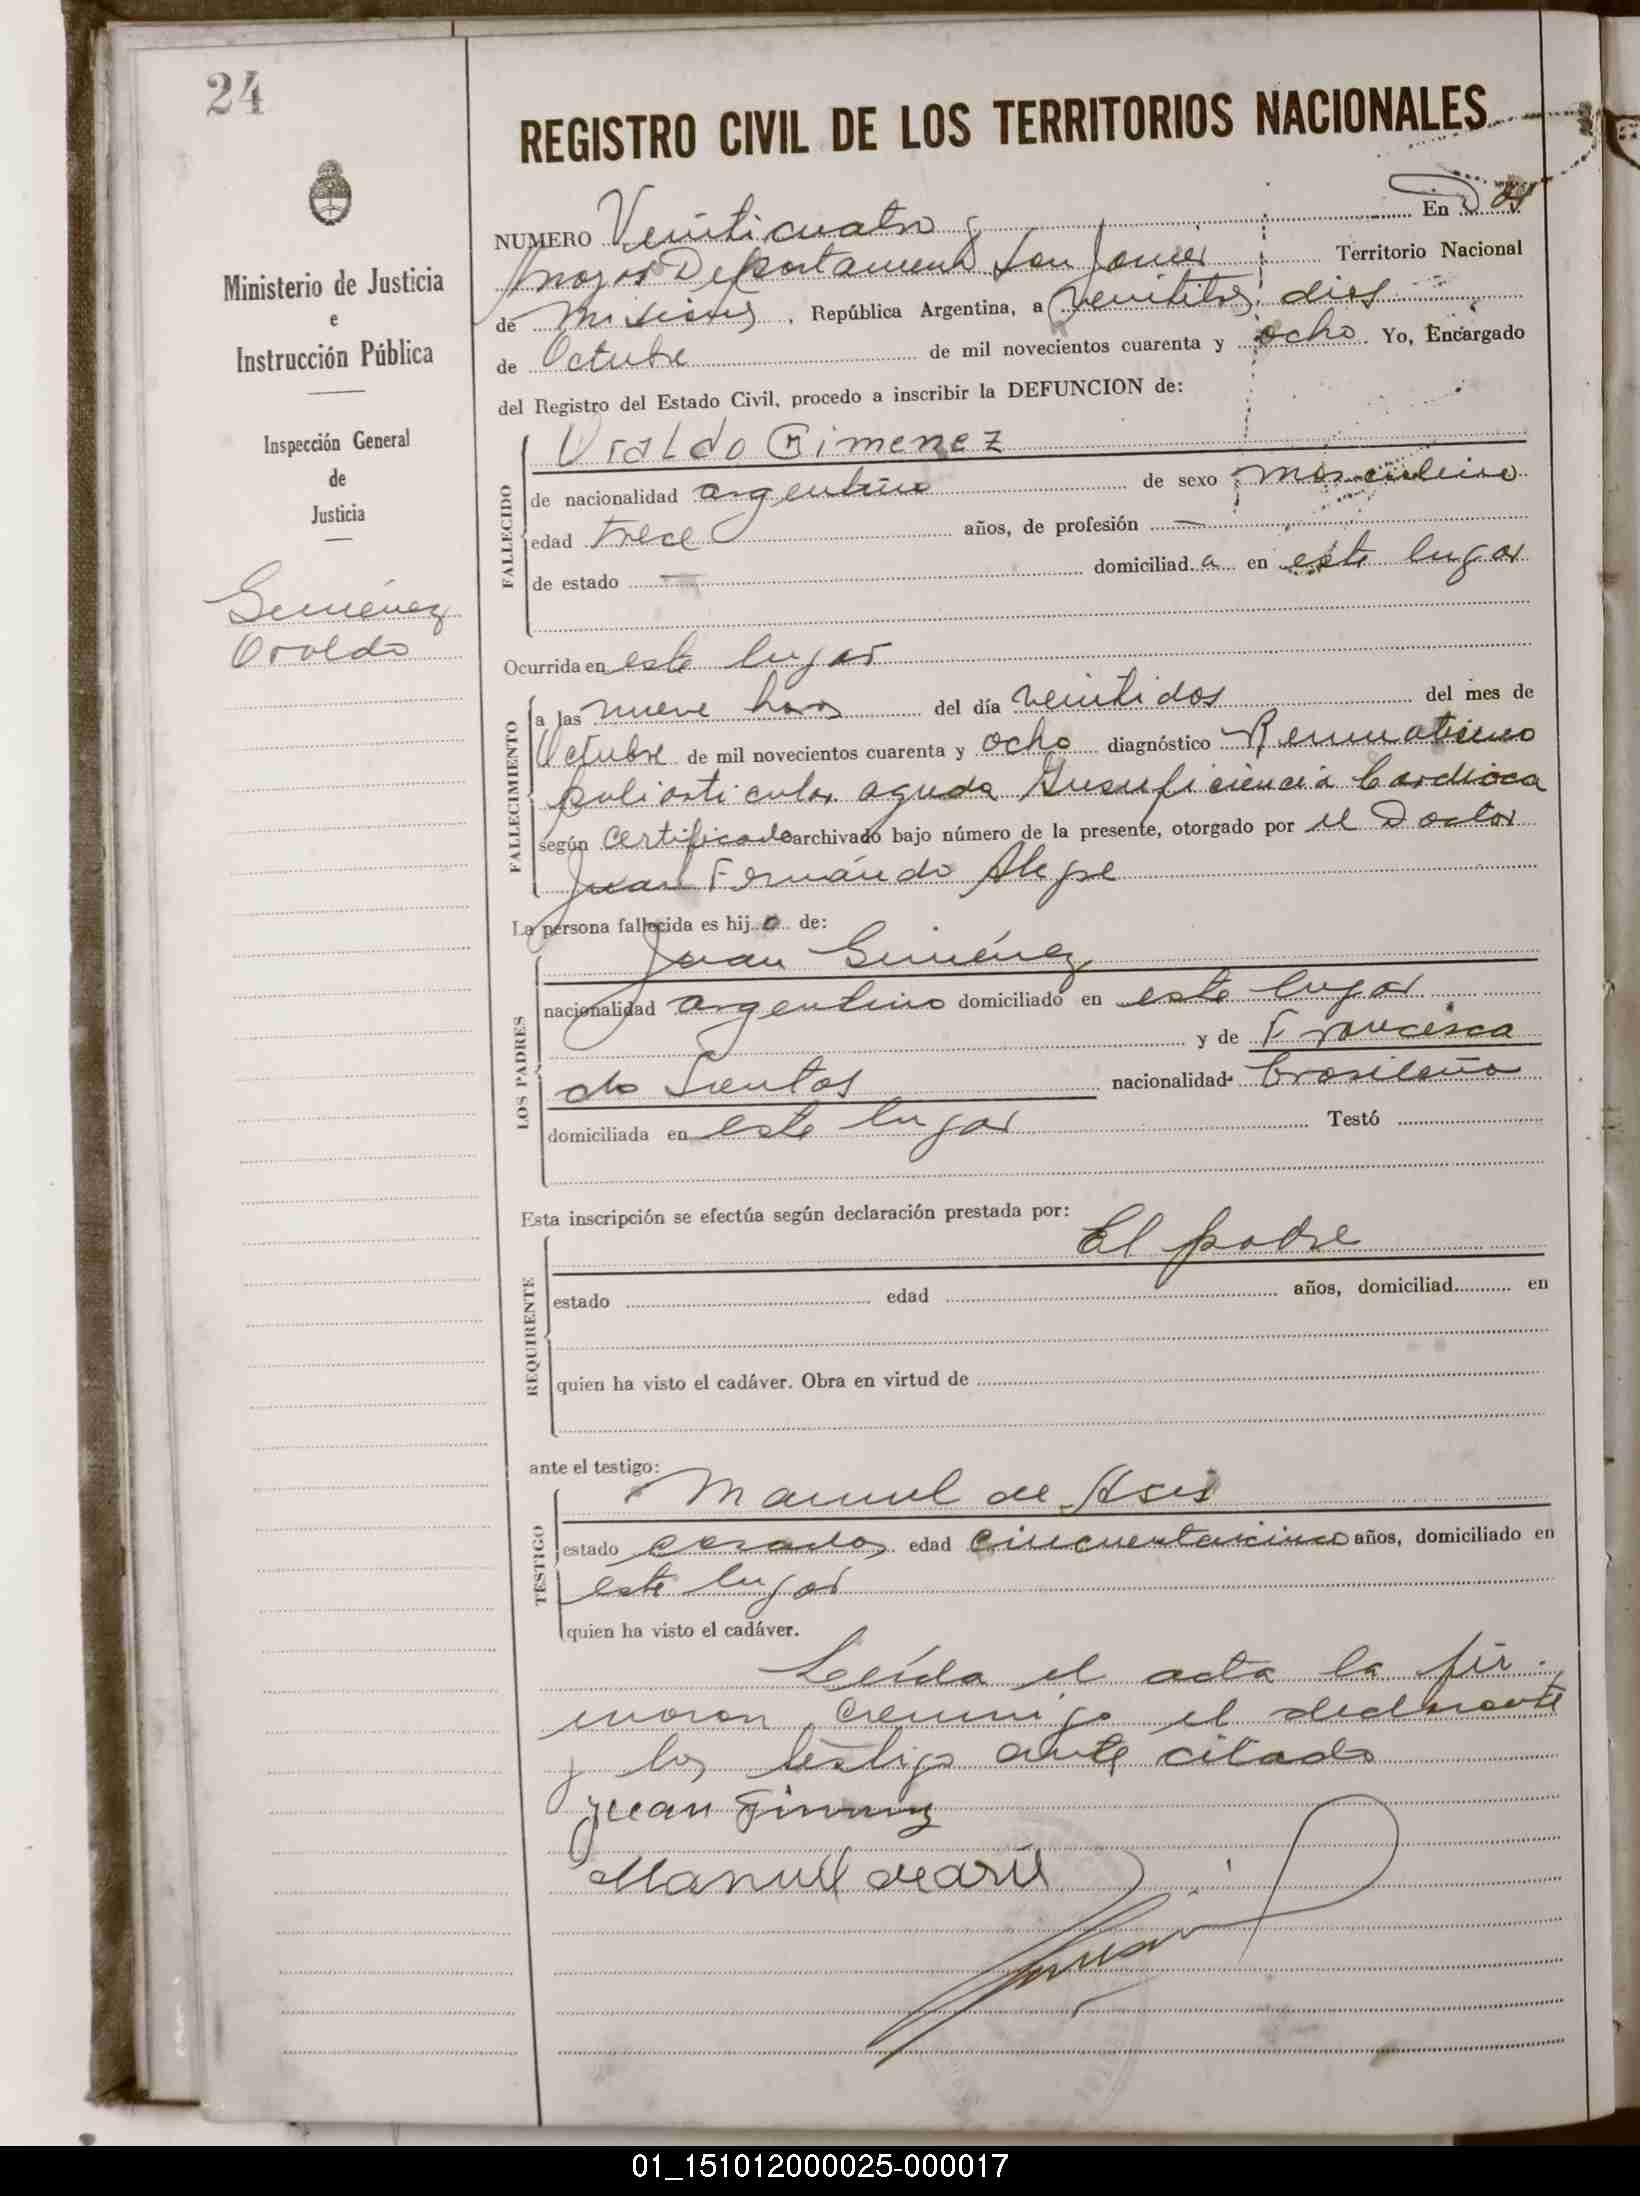 24
Ministerio de Justicia
e
Instrucción Pública
Inspección General
de
Justicia
Giménez
Oraldo
REGISTRO CIVIL DE LOS TERRITORIOS NACIONALES
NUMERO Veinticuatro En Dos
Arroyos Departamento San Javier Territorio Nacional
de Misiones, República Argentina, a veintitres dias
de Octubre de mil novecientos cuarenta y ocho. Yo, Encargado
del Registro del Estado Civil, procedo a inscribir la DEFUNCION de:
FALLECIDO
Oraldo Gimenez
de nacionalidad argentino de sexo masculino
edad trece años, de profesión —
de estado — domiciliad a en este lugar
Ocurrida en este lugar
FALLECIMIENTO
a las nueve horas del día veintidos del mes de
Octubre de mil novecientos cuarenta y ocho diagnóstico Reumatismo
poliarticular aguda Insuficiencia Cardiaca
según certificado archivado bajo número de la presente, otorgado por el Doctor
Juan Fernándo Alegre
La persona fallecida es hij o de:
LOS PADRES
Juan Giménez
nacionalidad argentino domiciliado en este lugar
y de Francisca
do Santos nacionalidad brasileña
domiciliada en este lugar Testó
Esta inscripción se efectúa según declaración prestada por:
REQUIRENTE
El padre
estado edad años, domiciliad en
quien ha visto el cadáver. Obra en virtud de
ante el testigo:
TESTIGO
Manuel de Asis
estado casado, edad cincuentaicinco años, domiciliado en
este lugar
quien ha visto el cadáver.
Leída el acta la fir-
maron conmigo el declarante
y los testigo ante citado
Juan Gimenez
Manuel de asis
01_151012000025-000017